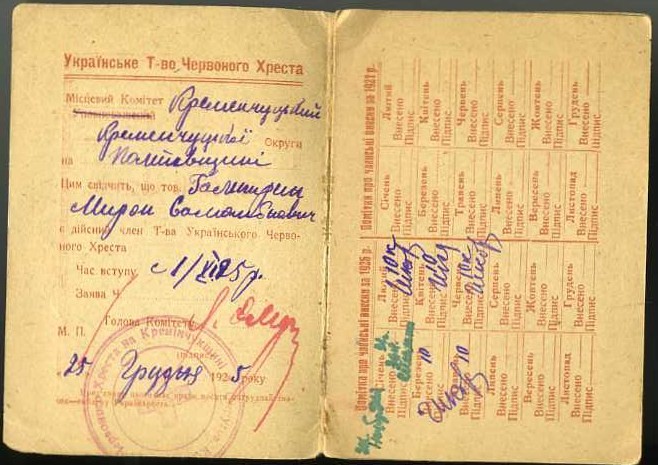 Українське Т-во Червоного Хреста
Місцевий Комітет Кременчуцький
Кременчуцької Округи
на Полтавщині
Цим свідчить, що тов.
Мирон Соломонович
є дійсний член Т-ва Українського Черво-
ного Хреста
Час вступу с 1/XII 25 р.
Заява Ч.
Голова Комітету
М. П. (підпис)
25 Грудня 1925 року
Червоного Хреста на Кремінчущині
Помітки про членські внески за 1921 р.
Січень
Внесено
Підпис
Лютий
Внесено
Підпис
Березень
Внесено
Підпис
Квітень
Внесено
Підпис
Травень
Внесено
Підпис
Червень
Внесено
Підпис
Липень
Внесено
Підпис
Серпень
Внесено
Підпис
Вересень
Внесено
Підпис
Жовтень
Внесено
Підпис
Листопад
Внесено
Підпис
Грудень
Внесено
Підпис
Помітки про членські внески за 1925 р.
Січень
Внесено
Підпис
Лютий
Внесено 10к
Підпис
Березень
Внесено 10
Підпис
Квітень
Внесено 10
Підпис
Травень
Внесено 10
Підпис
Червень
Внесено 10к
Підпис
Липень
Внесено
Підпис
Серпень
Внесено
Підпис
Вересень
Внесено
Підпис
Жовтень
Внесено
Підпис
Листопад
Внесено
Підпис
Грудень
Внесено
Підпис